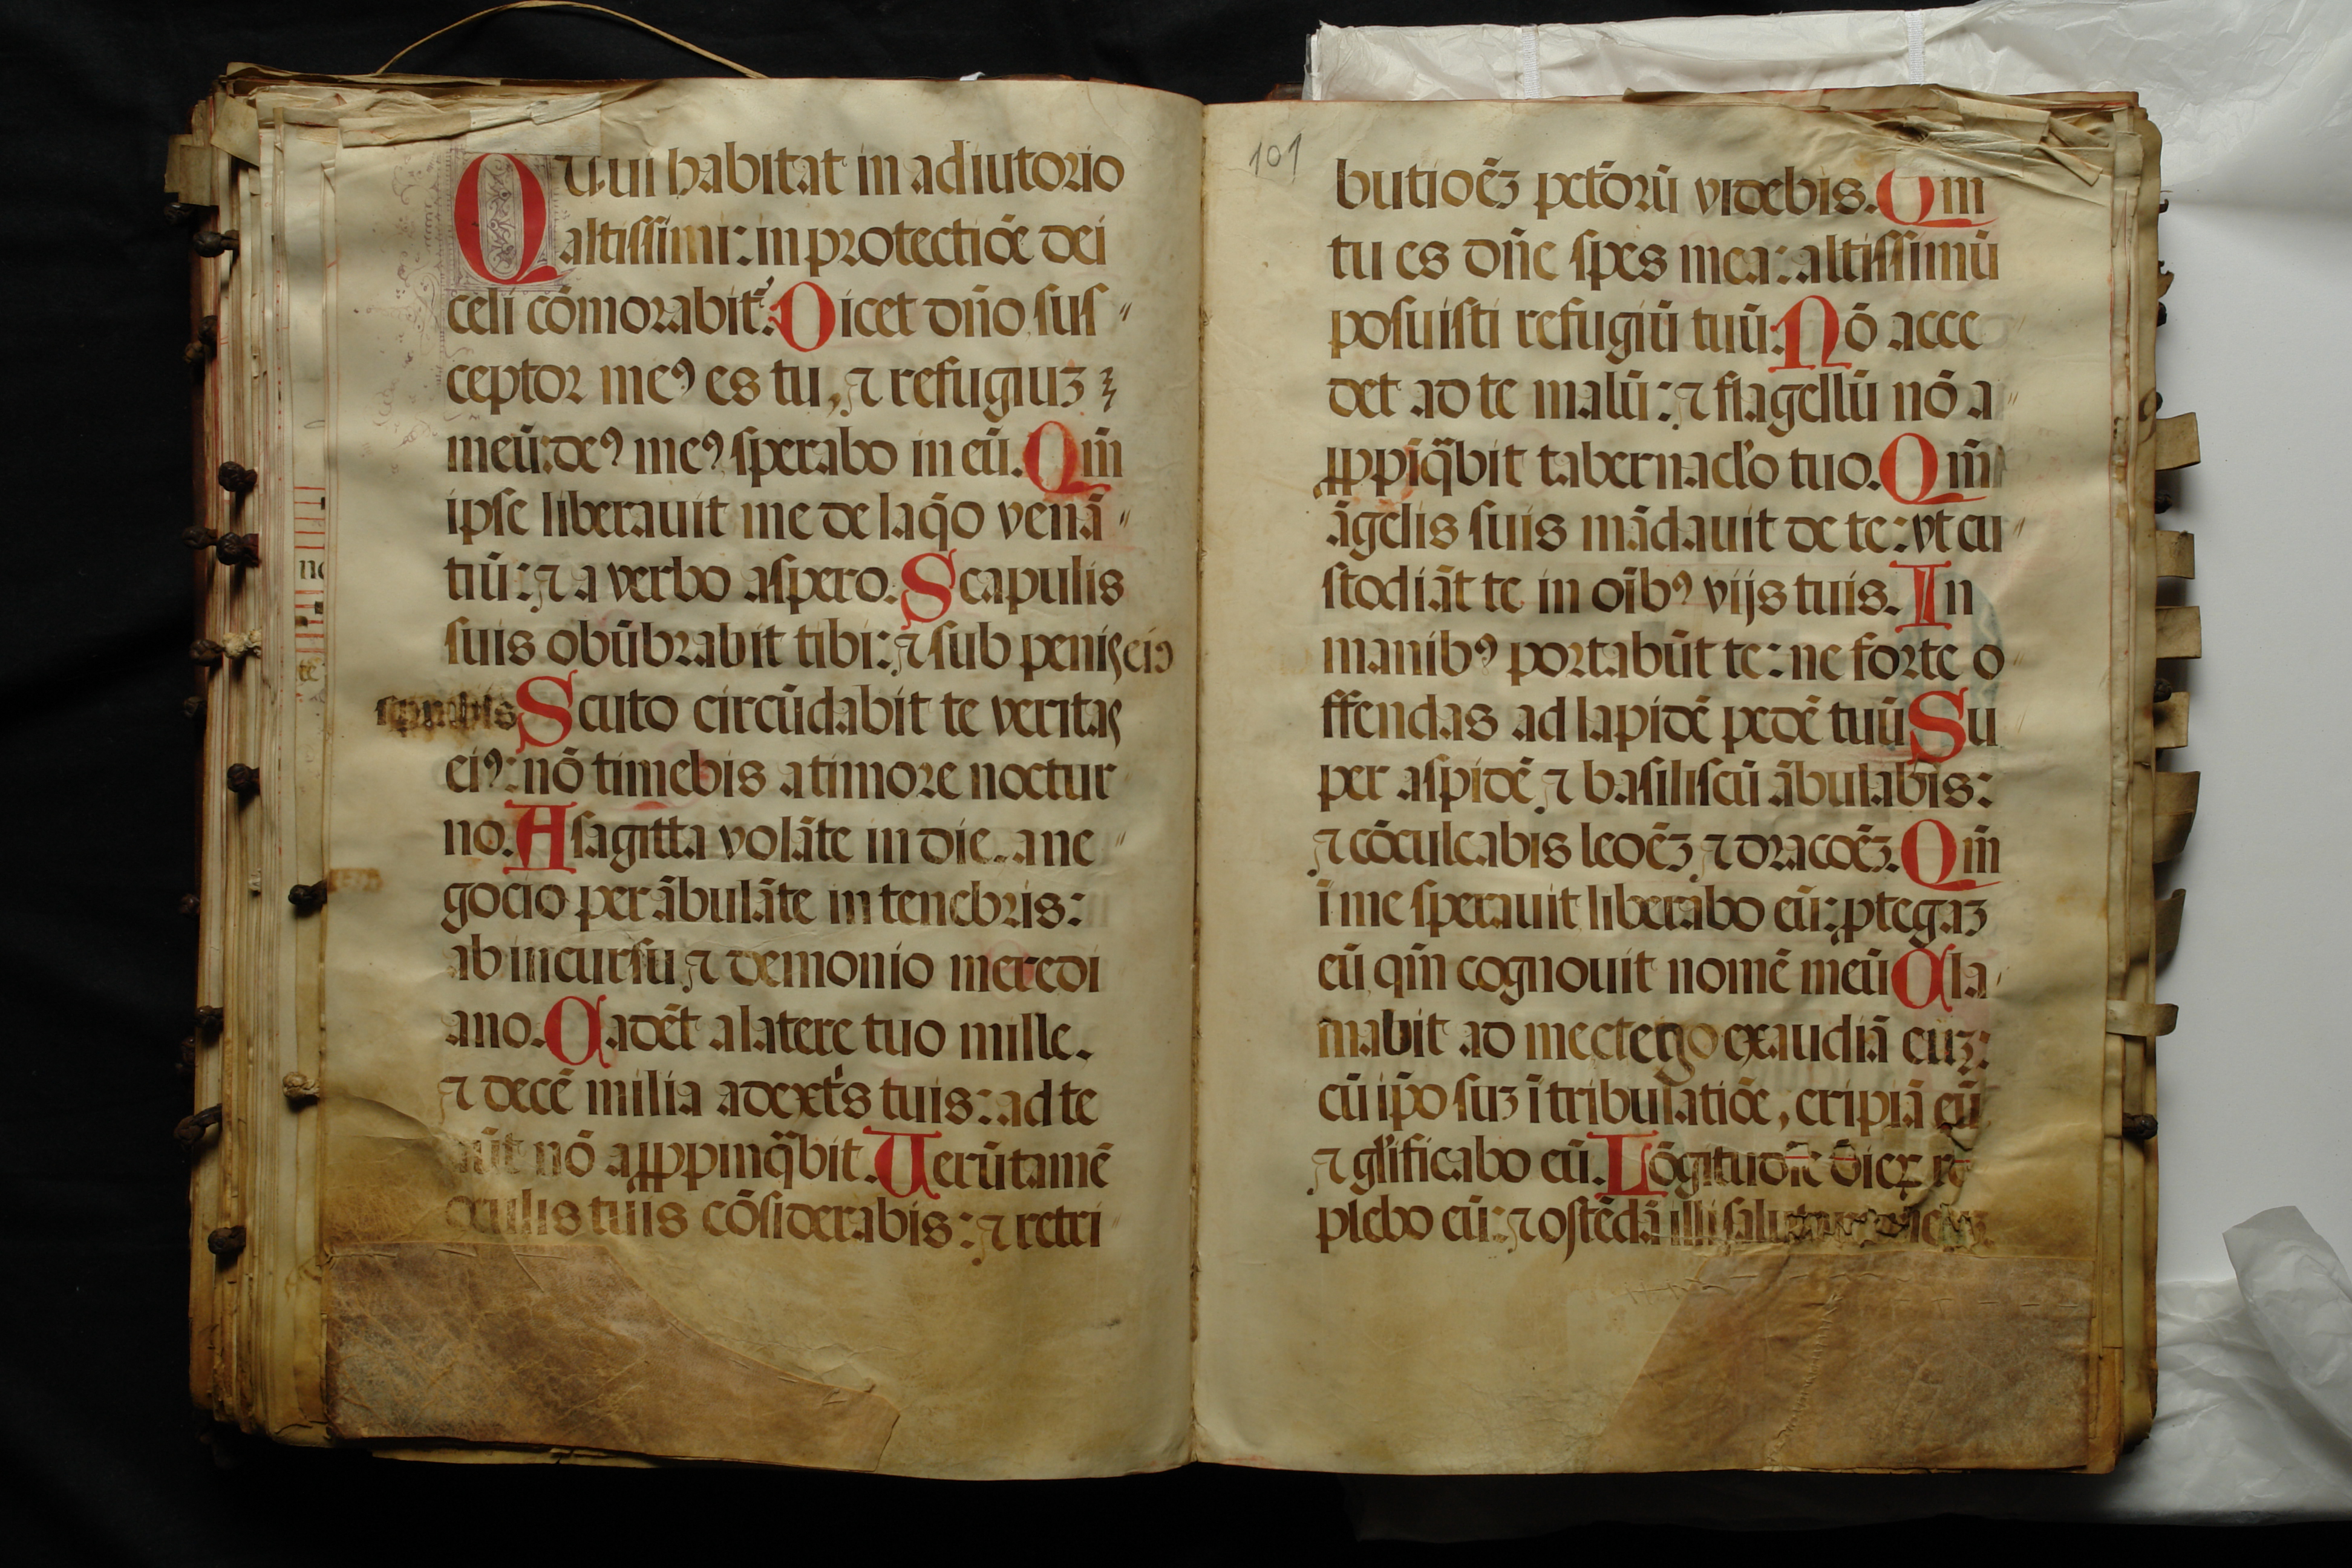 Qui habitat in adiutorio
altissimi: in protectiōe dei
celi cōmorabitʳ. Dicet dn̄o sus〃
ceptor meꝰ es tu, ⁊ refugiuʒ
meū: deꝰ meꝰ sperabo in eū. Qm̄
ipse liberauit me de laq̄o venā〃
tiū: ⁊ a verbo aspero. Scapulis
suis obūbrabit tibi: ⁊ sub penis eiꝰ
Scuto circūdabit te veritas
eiꝰ: nō timebis a timore noctur
no. A sagitta volāte in die. a ne〃
gocio perābulāte in tenebris:
ab incursu ⁊ demonio meredi
ano. Cadēt a latere tuo mille.
⁊ decē milia a dext̉s tuis: ad te
nō aꝓpinq̄bit. Uerūtamē
oculis tuis cōsiderabis: ⁊ retri
101
butioēʒ pctōrū videbis. Qm̄
tu es dn̄e spes mea: altissimū
posuisti refugiū tuū. Nō acce
det ad te malū: ⁊ flagellū nō a〃
ꝓpiq̄bit tabernacl̓o tuo. Qm̄
āgelis suis mādauit de te: vt cu〃
stodiāt te in oībꝰ vijs tuis. In
manibꝰ portabūt te: ne forte o
ffendas ad lapidē pedē tuū Su
per aspidē ⁊ basiliscū ābulabis:
⁊ cōculcabis leoēʒ ⁊ dracoēʒ. Qm̄
ī me sperauit liberabo eū: ꝓtegaʒ
eū qm̄ cognouit nomē meū Cla
mabit ad me et ego exaudiā euʒ:
cū ip̄o suʒ ī tribulatiōe, eripiā eū
⁊ gl̓ificabo eū. Lōgitudīe dieꝝ re
plebo eū: ⁊ ostēdā illi